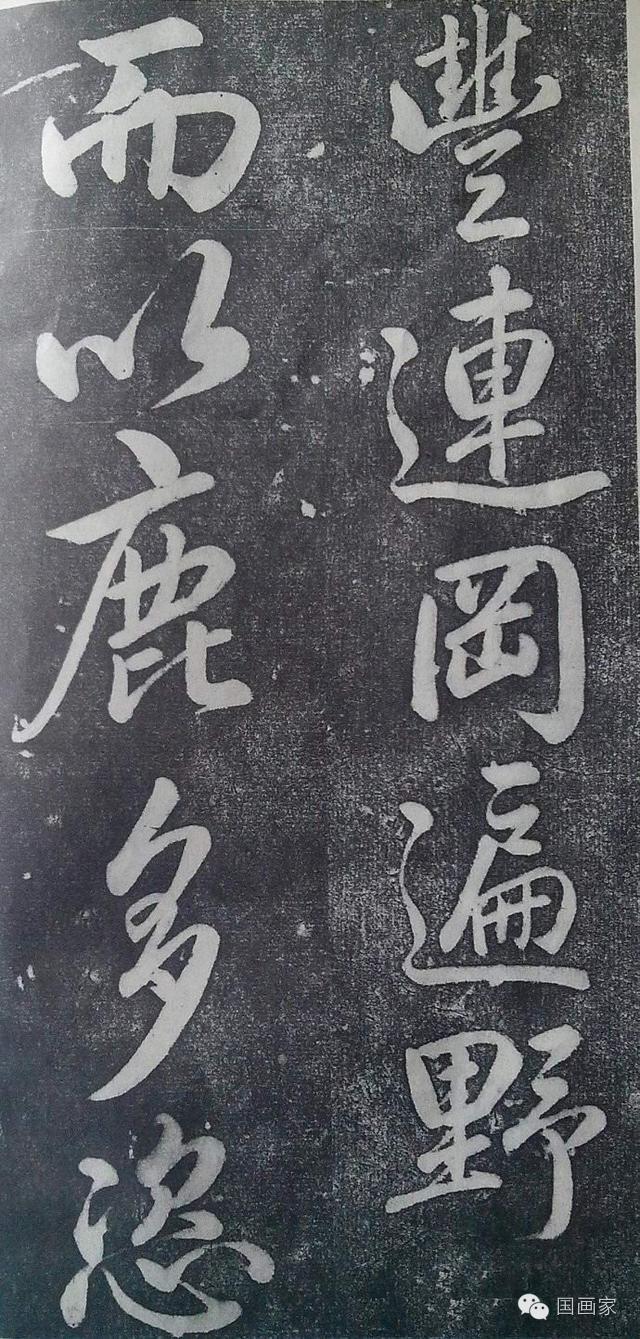 豐連岡遍野
而以鹿多
国画家